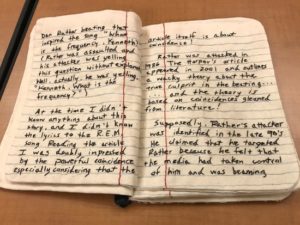 Dan Rather beating that
inspired the song "What
is the frequency, Kenneth?"
(Rather was assaulted and
his attacker was yelling
this question without explanation.
Well, actually, he was yelling,
"Kenneth, What is the
frequency?")
At the time I didn't
know anything about this
story, and I didn't know
the lyrics to the R.E.M.
song. Reading the article,
I was doubly impressed
by the powerful coincidence
especially considering that the
article itself is about
coincidence!
Rather was attacked in
1986. The Harper's article
appeared in 2001 and outlines
a wacky theory about the
true culprit in the beating...
and the theory is
based on coincidences gleaned
from literature!
Supposedly, Rather's attacker
was identified in the late 90's
He claimed that he targeted
Rather because he felt that
the media had taken control
of him and was beaming